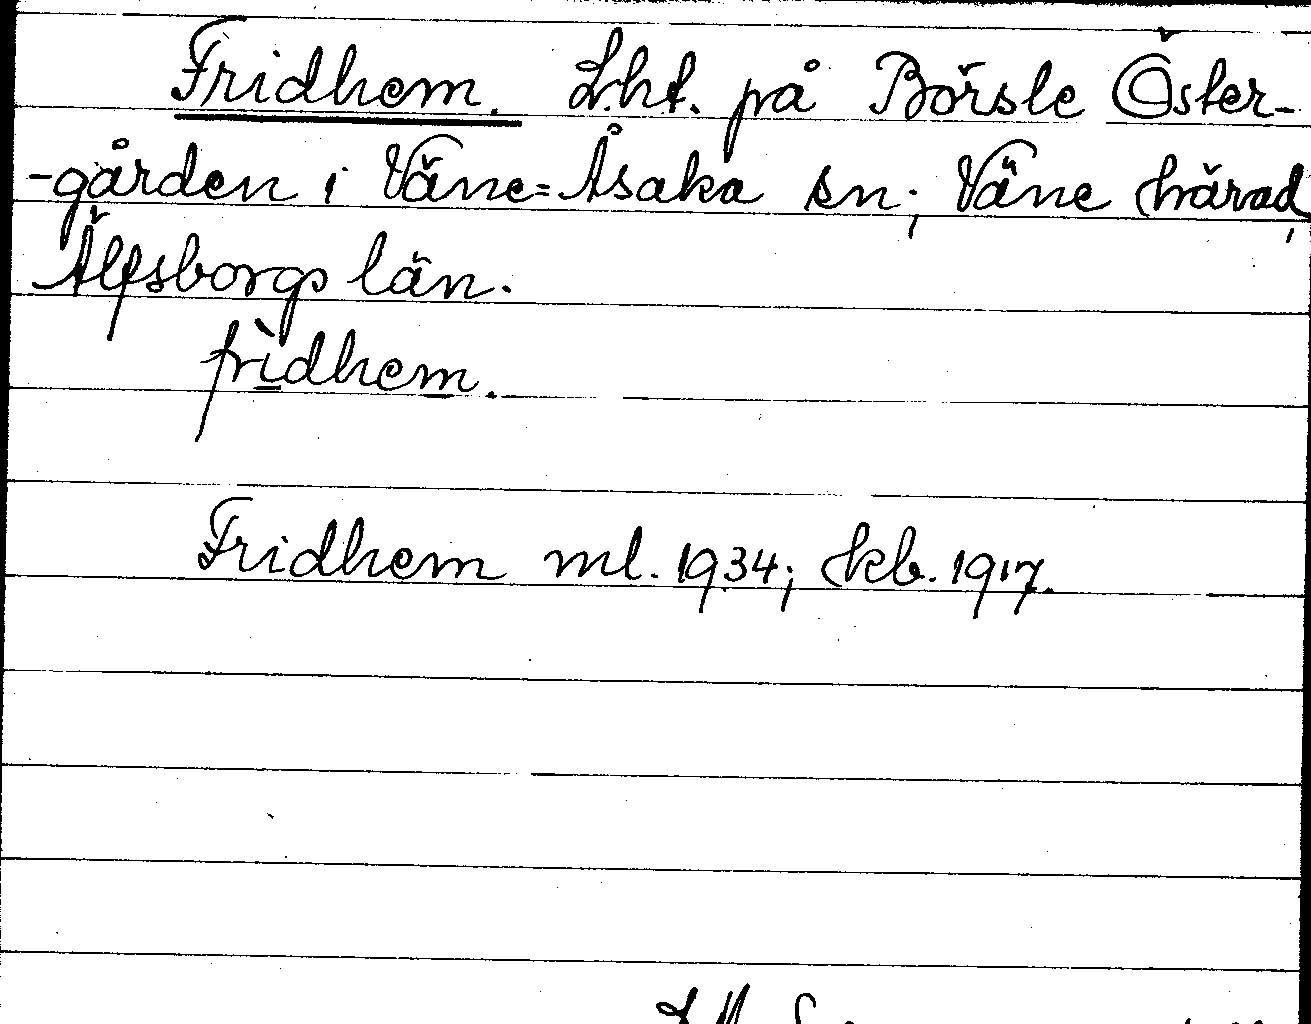 Fridhem. Lht. på Börsle Öster-
-gården i Väne=Åsaka sn; Väne härad,
Älfsborgs län.
frìdhem.
Fridhem ml. 1934; kb. 1917.